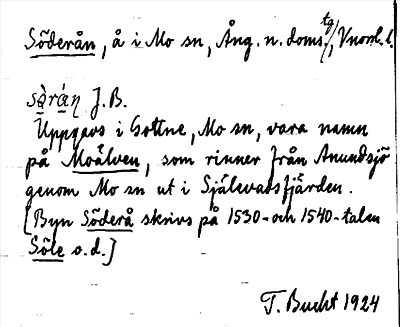 Söderån, å i Mo sn, Ång. n. doms.tg/, Vnorrl. l.
sø̀rán J.B.
Uppgavs i Gottne, Mo sn, vara namn
på Moälven, som rinner från Anundsjö
genom Mo sn ut i Själevadsfjärden.
[Byn Söderå skrivs på 1530- och 1540-talen
Söle o.d.]
T. Bucht 1924